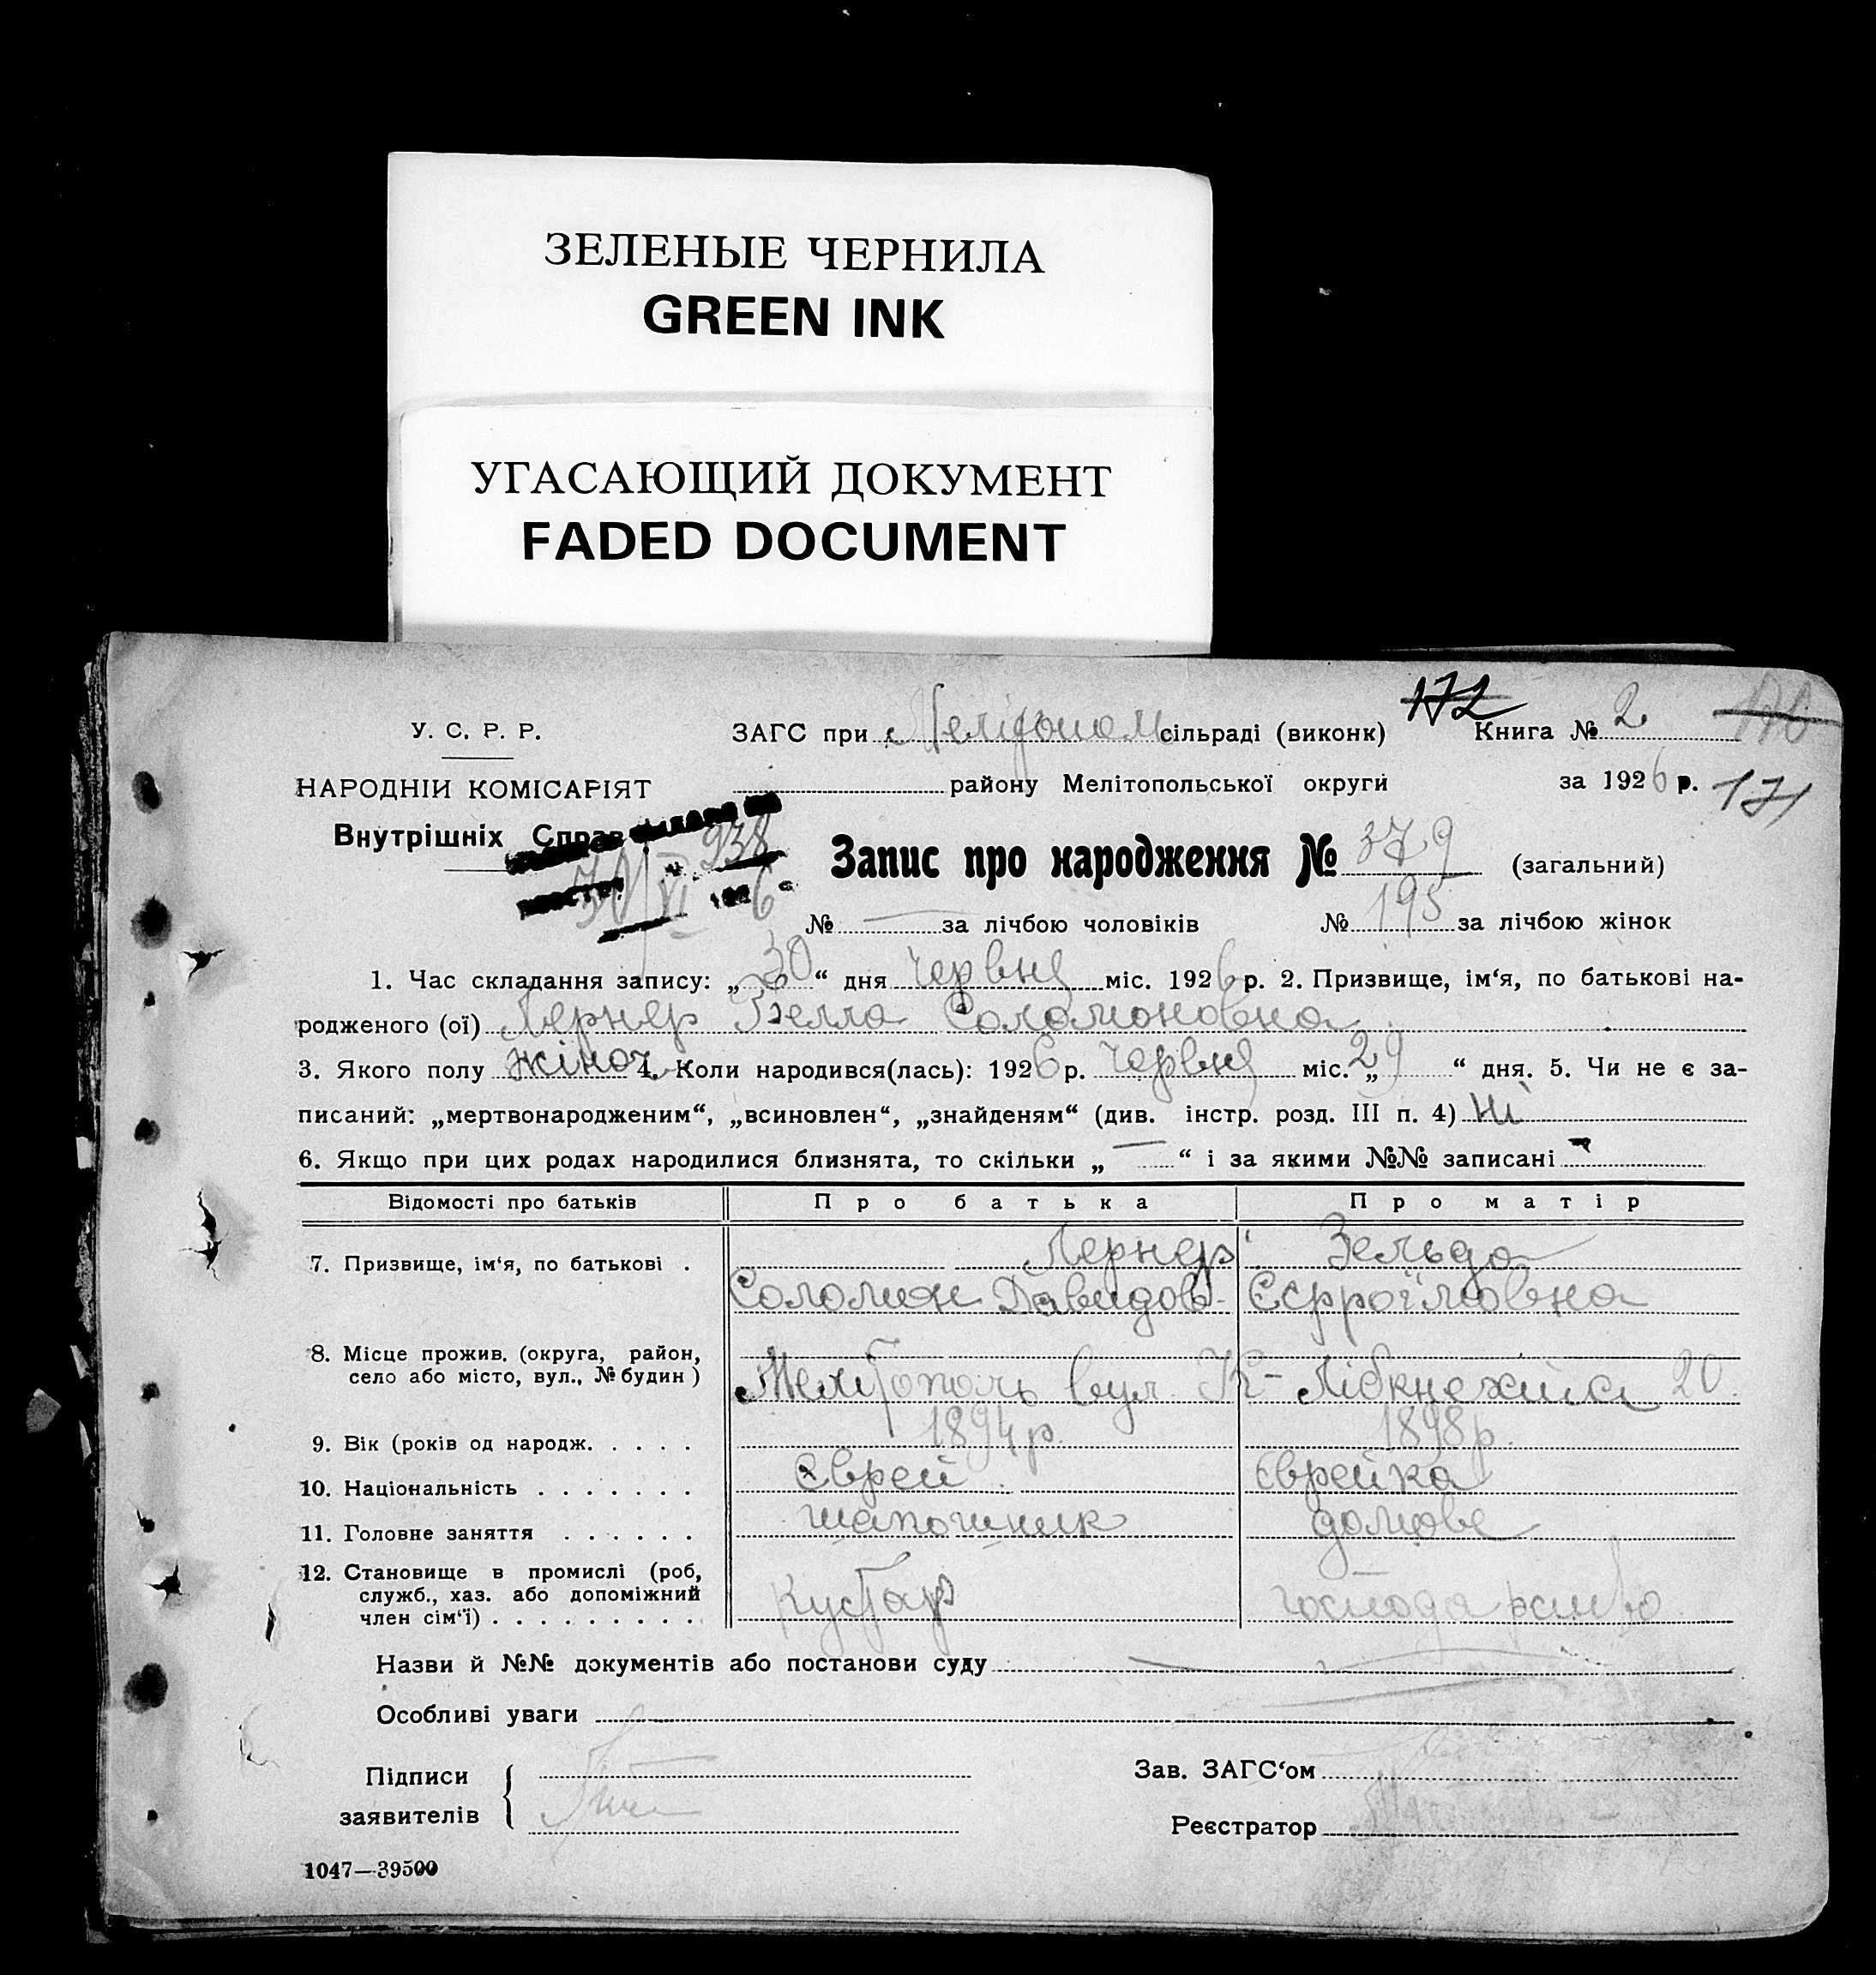 ЗЕЛЕНЫЕ ЧЕРНИЛА
GREEN INK
УГАСАЮЩИЙ ДОКУМЕНТ
FADED DOCUMENT
172
У. С. Р. Р. ЗАГС при Мелітополь сільраді (виконк) Книга № 2
НАРОДНІЙ КОМІСАРІЯТ району Мелітопольської округи за 1926 р. 171
Внутрішніх Справ 938
Запис про народження № 379 (загальний)
30 VI 1926
№ — за лічбою чоловіків № 195 за лічбою жінок
1. Час складання запису: „30“ дня Червня міс. 1926 р. 2. Призвище, ім‘я, по батькові на-
родженого (ої) Лернер Белла Соломоновна
3. Якого полу жіноч. 4. Коли народився(лась): 1926 р. Червня міс. „29“ дня. 5. Чи не є за-
писаний: „мертвонародженим“, „всиновлен“, „знайденям“ (див. інстр. розд. III п. 4) Ні
6. Якщо при цих родах народилися близнята, то скільки „—“ і за якими №№ записані
Відомості про батьків Про батька Про матір
7. Призвище, ім‘я, по батькові . Лернер Зельда
Соломон Давидов-
8. Місце прожив. (округа, район,
село або місто, вул., № будин) Мелітополь вул. К-Лібкнехта 20.
9. Вік (років од народж. . . . . 1894 р. 1898 р.
10. Національність . . . . . . . Єврей Єврейка
11. Головне заняття . . . . . . шапошник домове
12. Становище в промислі (роб,
служб., хаз. або допоміжний
член сім‘ї) . . . . . . . . . Кустар
Назви й №№ документів або постанови суду
Особливі уваги
Підписи Зав. ЗАГС‘ом
заявителів Реєстратор
1047—39500